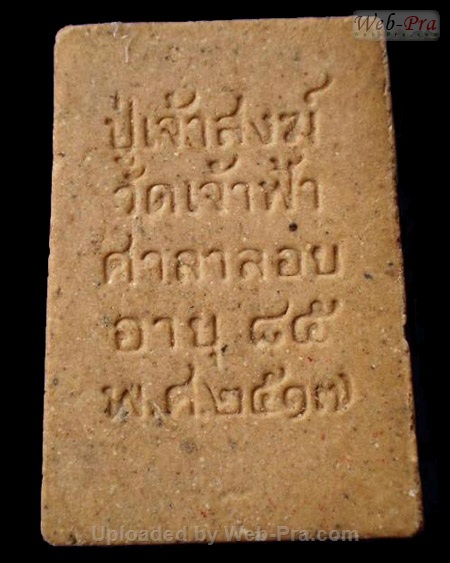 Web-Pra
ปู่เจ้าสงฆ์
วัดเจ้าฟ้า
ศาลาลอย
อายุ ๘๕
พ.ศ.๒๕๑๗
Uploaded by Web-Pra.com